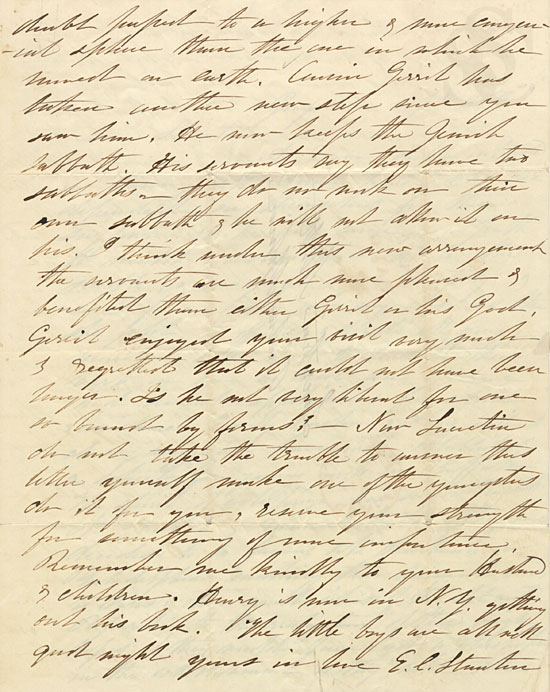 doubt perfect to a higher & more congen-
-ial sphere than the one in which he
moved on earth. Cousin Gerrit has
taken another new step since you
saw him. He now keeps the Jewish
sabbath. His servants say they have two
sabbaths – they do no work on their
own sabbath & he will not allow it on
his. I think under this new arrangement
the servants are much more pleased &
benefited than either Gerrit or his God.
Gerrit enjoyed your visit very much
& regretted that it could not have been
longer. Is he not very liberal for one
so bound by forms? – Now Lucretia
do not take the trouble to answer this
letter yourself make one of the youngsters
do it for you, reserve your strength
for something of more importance.
Remember me kindly to your Husband
& children. Henry is now in N.Y. getting
out his book. The little boys are all well
good night yours in love E. C. Stanton